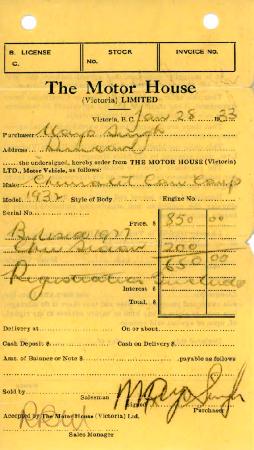 B. LICENSE STOCK INVOICE No.
C. No.
The Motor House
(Victoria) LIMITED
Victoria, B.C. Jan 28 1933
Purchaser Mayo Singh
Address
the undersigned, hereby order from THE MOTOR HOUSE (Victoria)
LTD., Motor Vehicle, as follows:
Make Chevrolet
Model 1932 Style of Body Engine No.
Serial No. Price, $ 850 00
By used 1927
200 00
650 00
Registration
Interest $
Total, $
Delivery at On or about
Cash Deposit $ Cash on Delivery $
Amt. of Balance or Note $ payable as follows
Sold by Salesman Mayo Singh
Signed Purchaser
Accepted by The Motor House (Victoria) Ltd.
Sales Manager